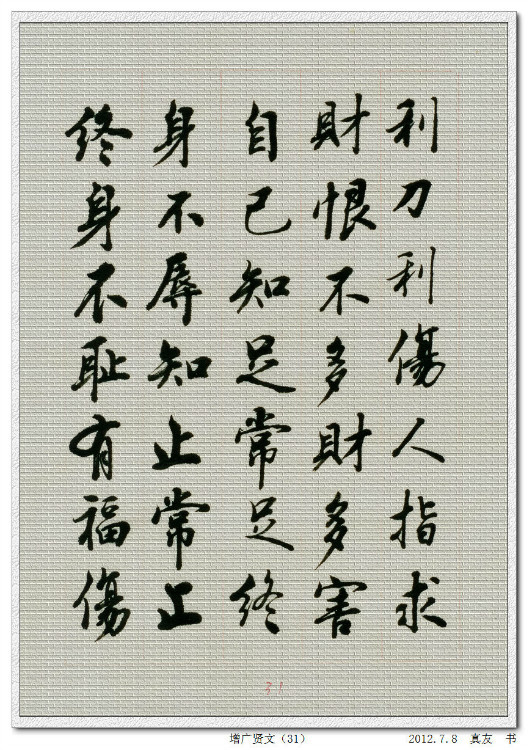 利刀利傷人指求
財恨不多財多害
自己知足常足終
身不辱知止常止
終身不耻有福傷
31
增广贤文（31）
2012.7.8 真友 书